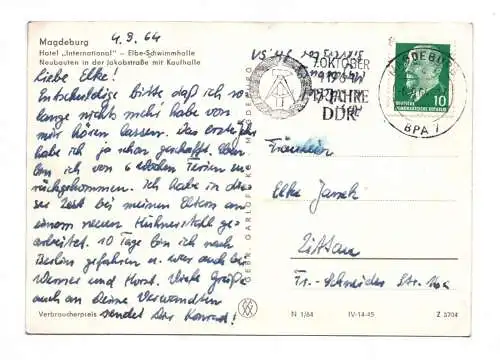 Magdeburg 4.9.64
Hotel „International" – Elbe-Schwimmhalle
Neubauten in der Jakobstraße mit Kaufhalle
Liebe Elke!
Entschuldige bitte daß ich so
lange nichts mehr habe von
mir hören lassen. Das erste Jahr
habe ich ja schon geschafft.
bin ich von 6 Wochen Ferien zu
rückgekommen. Ich habe in die
ser Zeit bei meinen Eltern an
einem neuen Hühnerstall ge-
arbeitet. 10 Tage bin ich nach
Berlin gefahren u. war auch bei
Werner und Horst. Viele Grüße
auch an Deine Verwandten
sendet Dir Konrad!
Verbraucherpreis
GEBR. GARLOFF KG MAGDEBURG
7. OKTOBER
1964
15 JAHRE
DDR
MAGDEBURG
BPA 7
DEUTSCHE
DEMOKRATISCHE REPUBLIK
10
Fräulein
Elke
Zittau
Fr.-Schneider Str.
N 1/64 IV-14-45 Z 5704